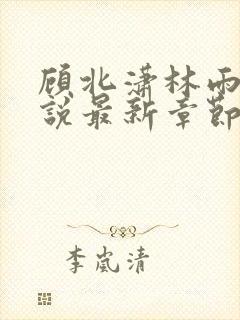 顾北潇林雨
說最新章節
李嵐清